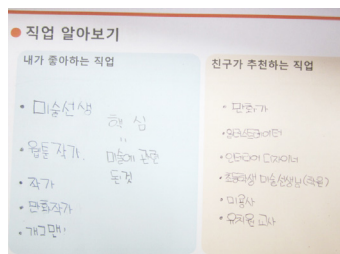 직업 알아보기
내가 좋아하는 직업
• 미술선생
• 웹툰 작가.
• 작가
• 만화작가
• 개그맨
핵심
"
미술에 관한
모든것
친구가 추천하는 직업
• 만화가
• 일러스트레이터
• 인테리어 디자이너
• 초등학생 미술선생님(학원)
• 미용사
• 유치원 교사